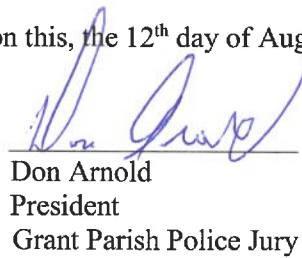 on this, the 12th day of Aug
Don Arnold
Don Arnold
President
Grant Parish Police Jury